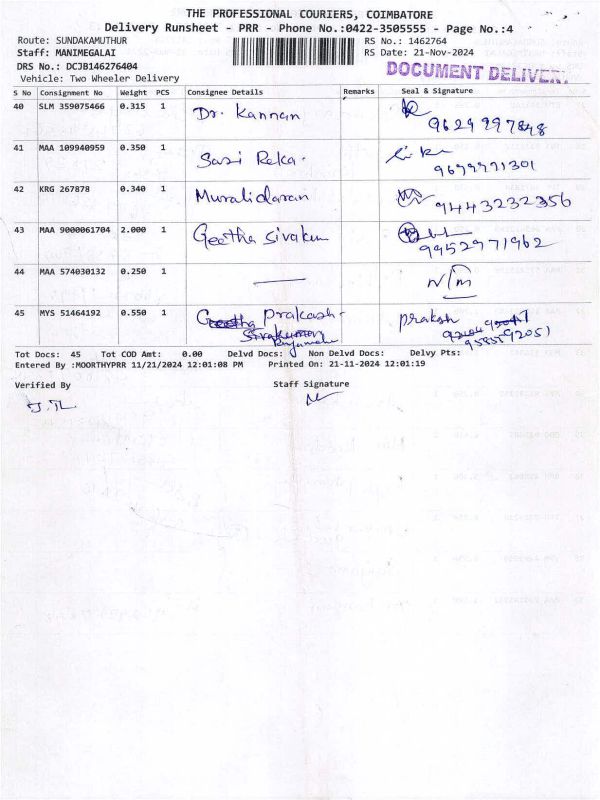 THE PROFESSIONAL COURIERS, COIMBATORE
Delivery Runsheet - PRR - Phone No.:0422-3505555 - Page No.:4
Route: SUNDAKAMUTHUR RS No.: 1462764
Staff: MANIMEGALAI RS Date: 21-Nov-2024
DRS No.: DCJB146276404 DOCUMENT DELIVERY
Vehicle: Two Wheeler Delivery
S No Consignment No Weight PCS Consignee Details Remarks Seal & Signature
40 SLM 359075466 0.315 1 Dr. Kannan
9629997848
41 MAA 109940959 0.350 1 Sasi Reka.
9699991301
42 KRG 267878 0.340 1 Muralidaran 9443232356
43 MAA 9000061704 2.000 1 Geetha Sivakum
9952971962
44 MAA 574030132 0.250 1 — N/m
45 MYS 51464192 0.550 1 Geetha Prakash- Prakash
Sivakumar
9585592051
Tot Docs: 45 Tot COD Amt: 0.00 Delvd Docs: Non Delvd Docs: Delvy Pts:
Entered By :MOORTHYPRR 11/21/2024 12:01:08 PM Printed On: 21-11-2024 12:01:19
Verified By Staff Signature